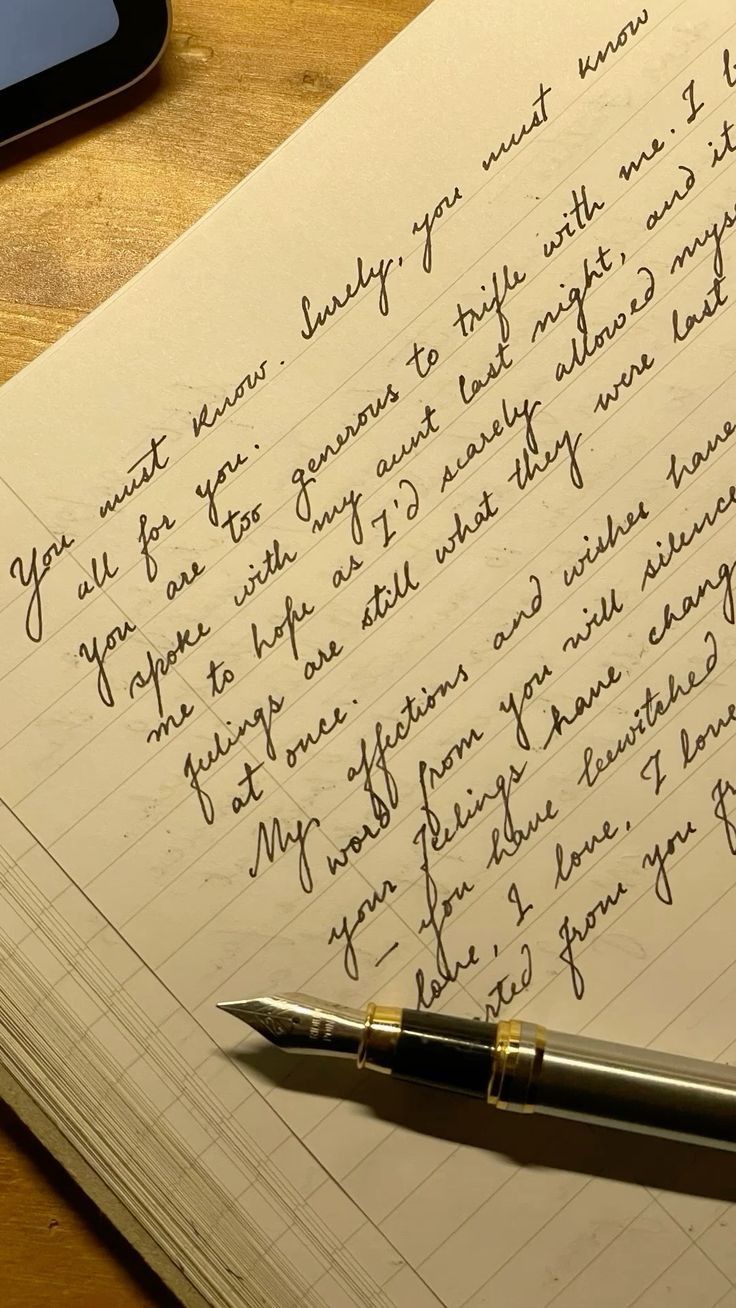 You must know. Surely, you must know
all for you.
You are too generous to trifle with me. I
spoke with my aunt last night, and it
me to hope as I'd scarely allowed
feelings are still what they were last
at once.
My affections and wishes have
word from you will silence
your feelings have
— you have bewitched
love, I love, I love
from you